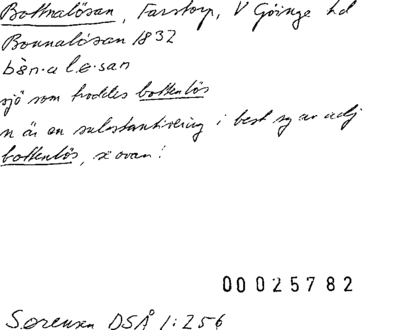 Bottnalösan, Farstorp, V Göinge hd
Bonnalösan 1832
bòn·a l·e·san
sjö som troddes bottenlös
n är en substantivering i best sg av adj
bottenlös, se ovan!
00025782
Sørensen DSÅ 1:256